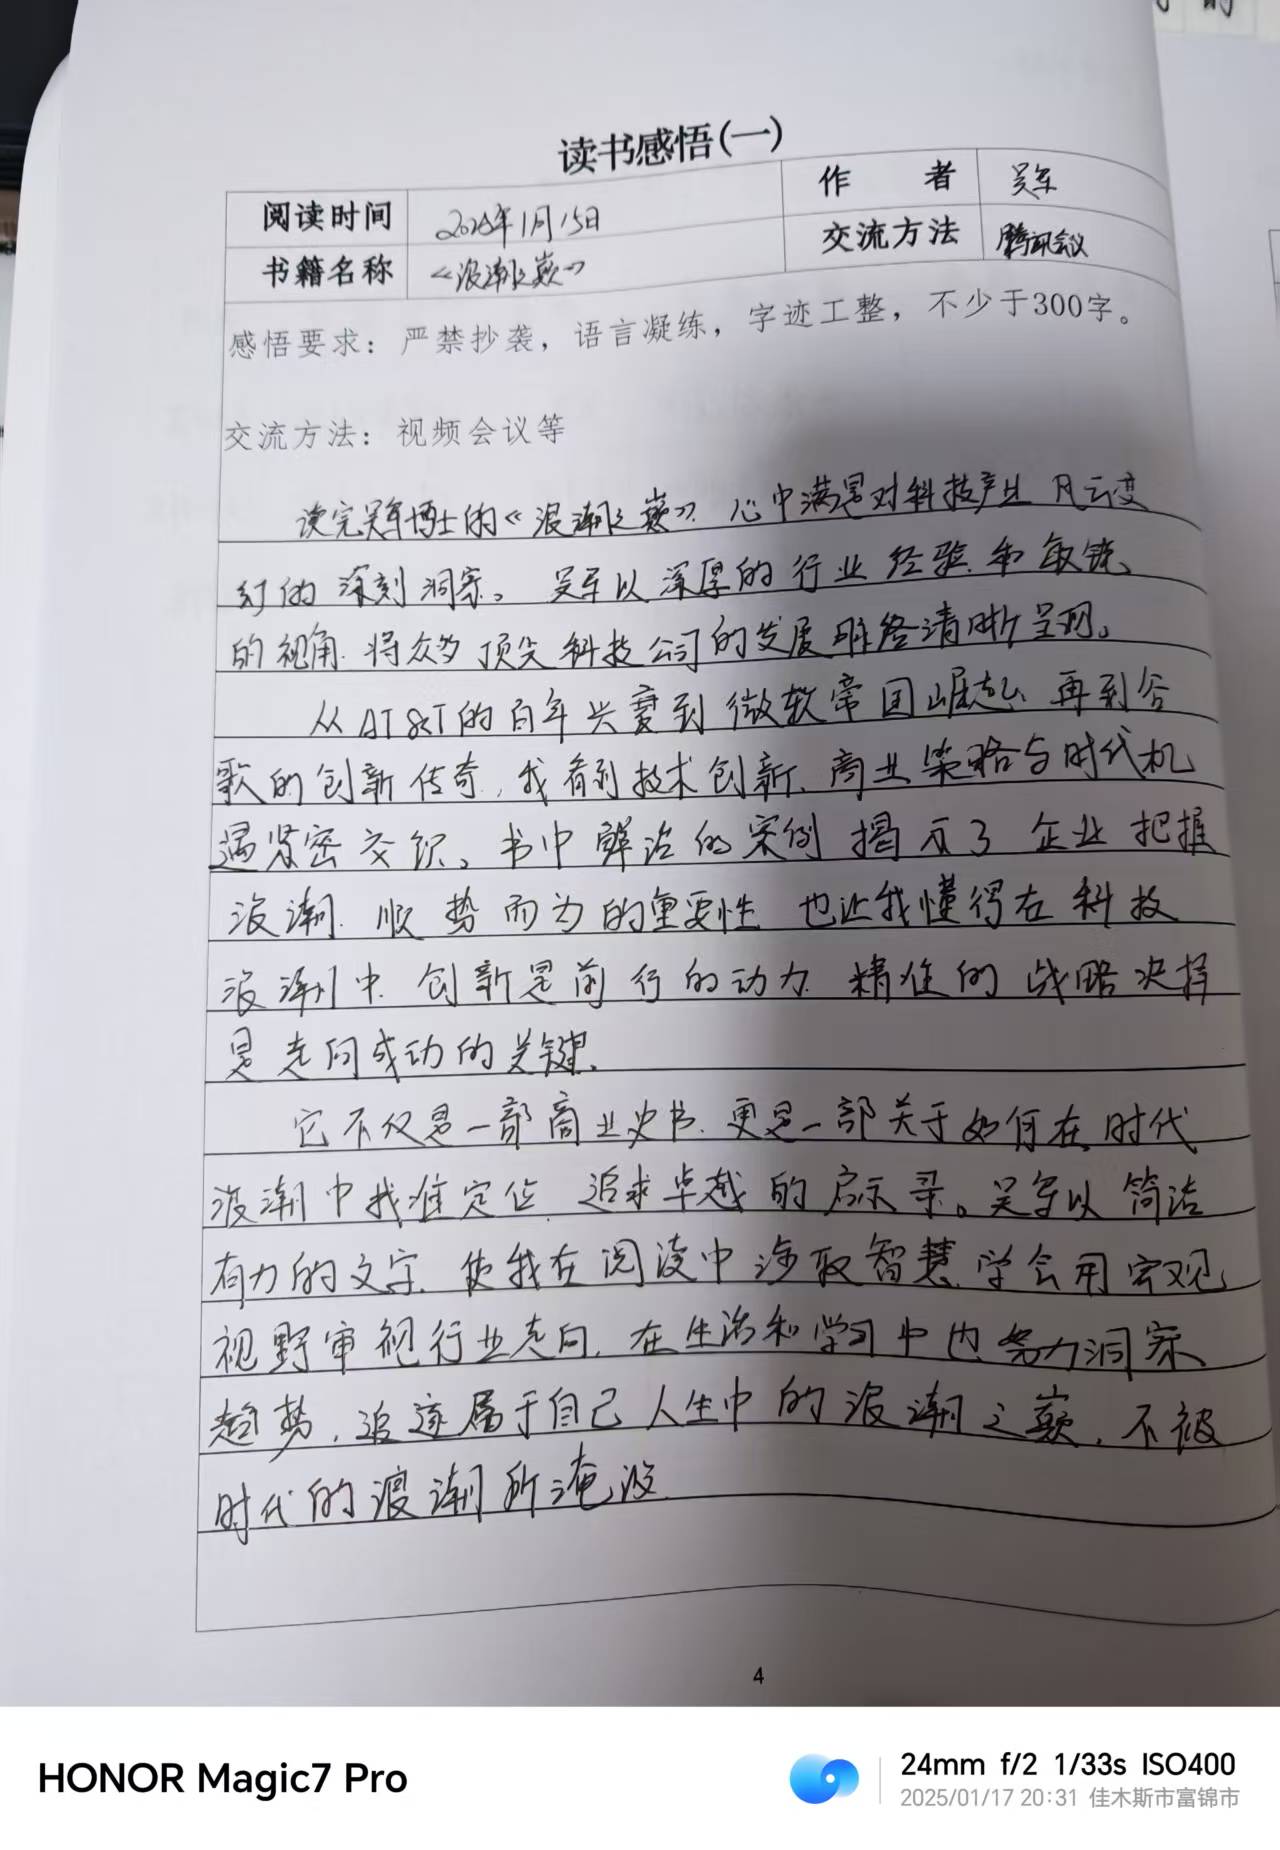 读书感悟(一)
阅读时间 2025年1月15日 作者 吴军
书籍名称 《浪潮之巅》 交流方法 腾讯会议
感悟要求：严禁抄袭，语言凝练，字迹工整，不少于300字。
交流方法：视频会议等
读完吴军博士的《浪潮之巅》，心中满是对科技产业风云变
幻的深刻洞察。吴军以深厚的行业经验和敏锐
的视角，将众多顶尖科技公司的发展脉络清晰呈现。
从AT&T的百年兴衰到微软帝国崛起，再到谷
歌的创新传奇，我看到技术创新、商业策略与时代机
遇紧密交织。书中鲜活的案例揭示了企业把握
浪潮、顺势而为的重要性，也让我懂得在科技
浪潮中，创新是前行的动力，精准的战略决择
是走向成功的关键。
它不仅是一部商业史书，更是一部关于如何在时代
浪潮中找准定位，追求卓越的启示录。吴军以简洁
有力的文字，使我在阅读中汲取智慧，学会用宏观
视野审视行业走向，在生活和学习中也努力洞察
趋势，追逐属于自己人生中的浪潮之巅，不被
时代的浪潮所淹没
4
HONOR Magic7 Pro
24mm f/2 1/33s ISO400
2025/01/17 20:31 佳木斯市富锦市